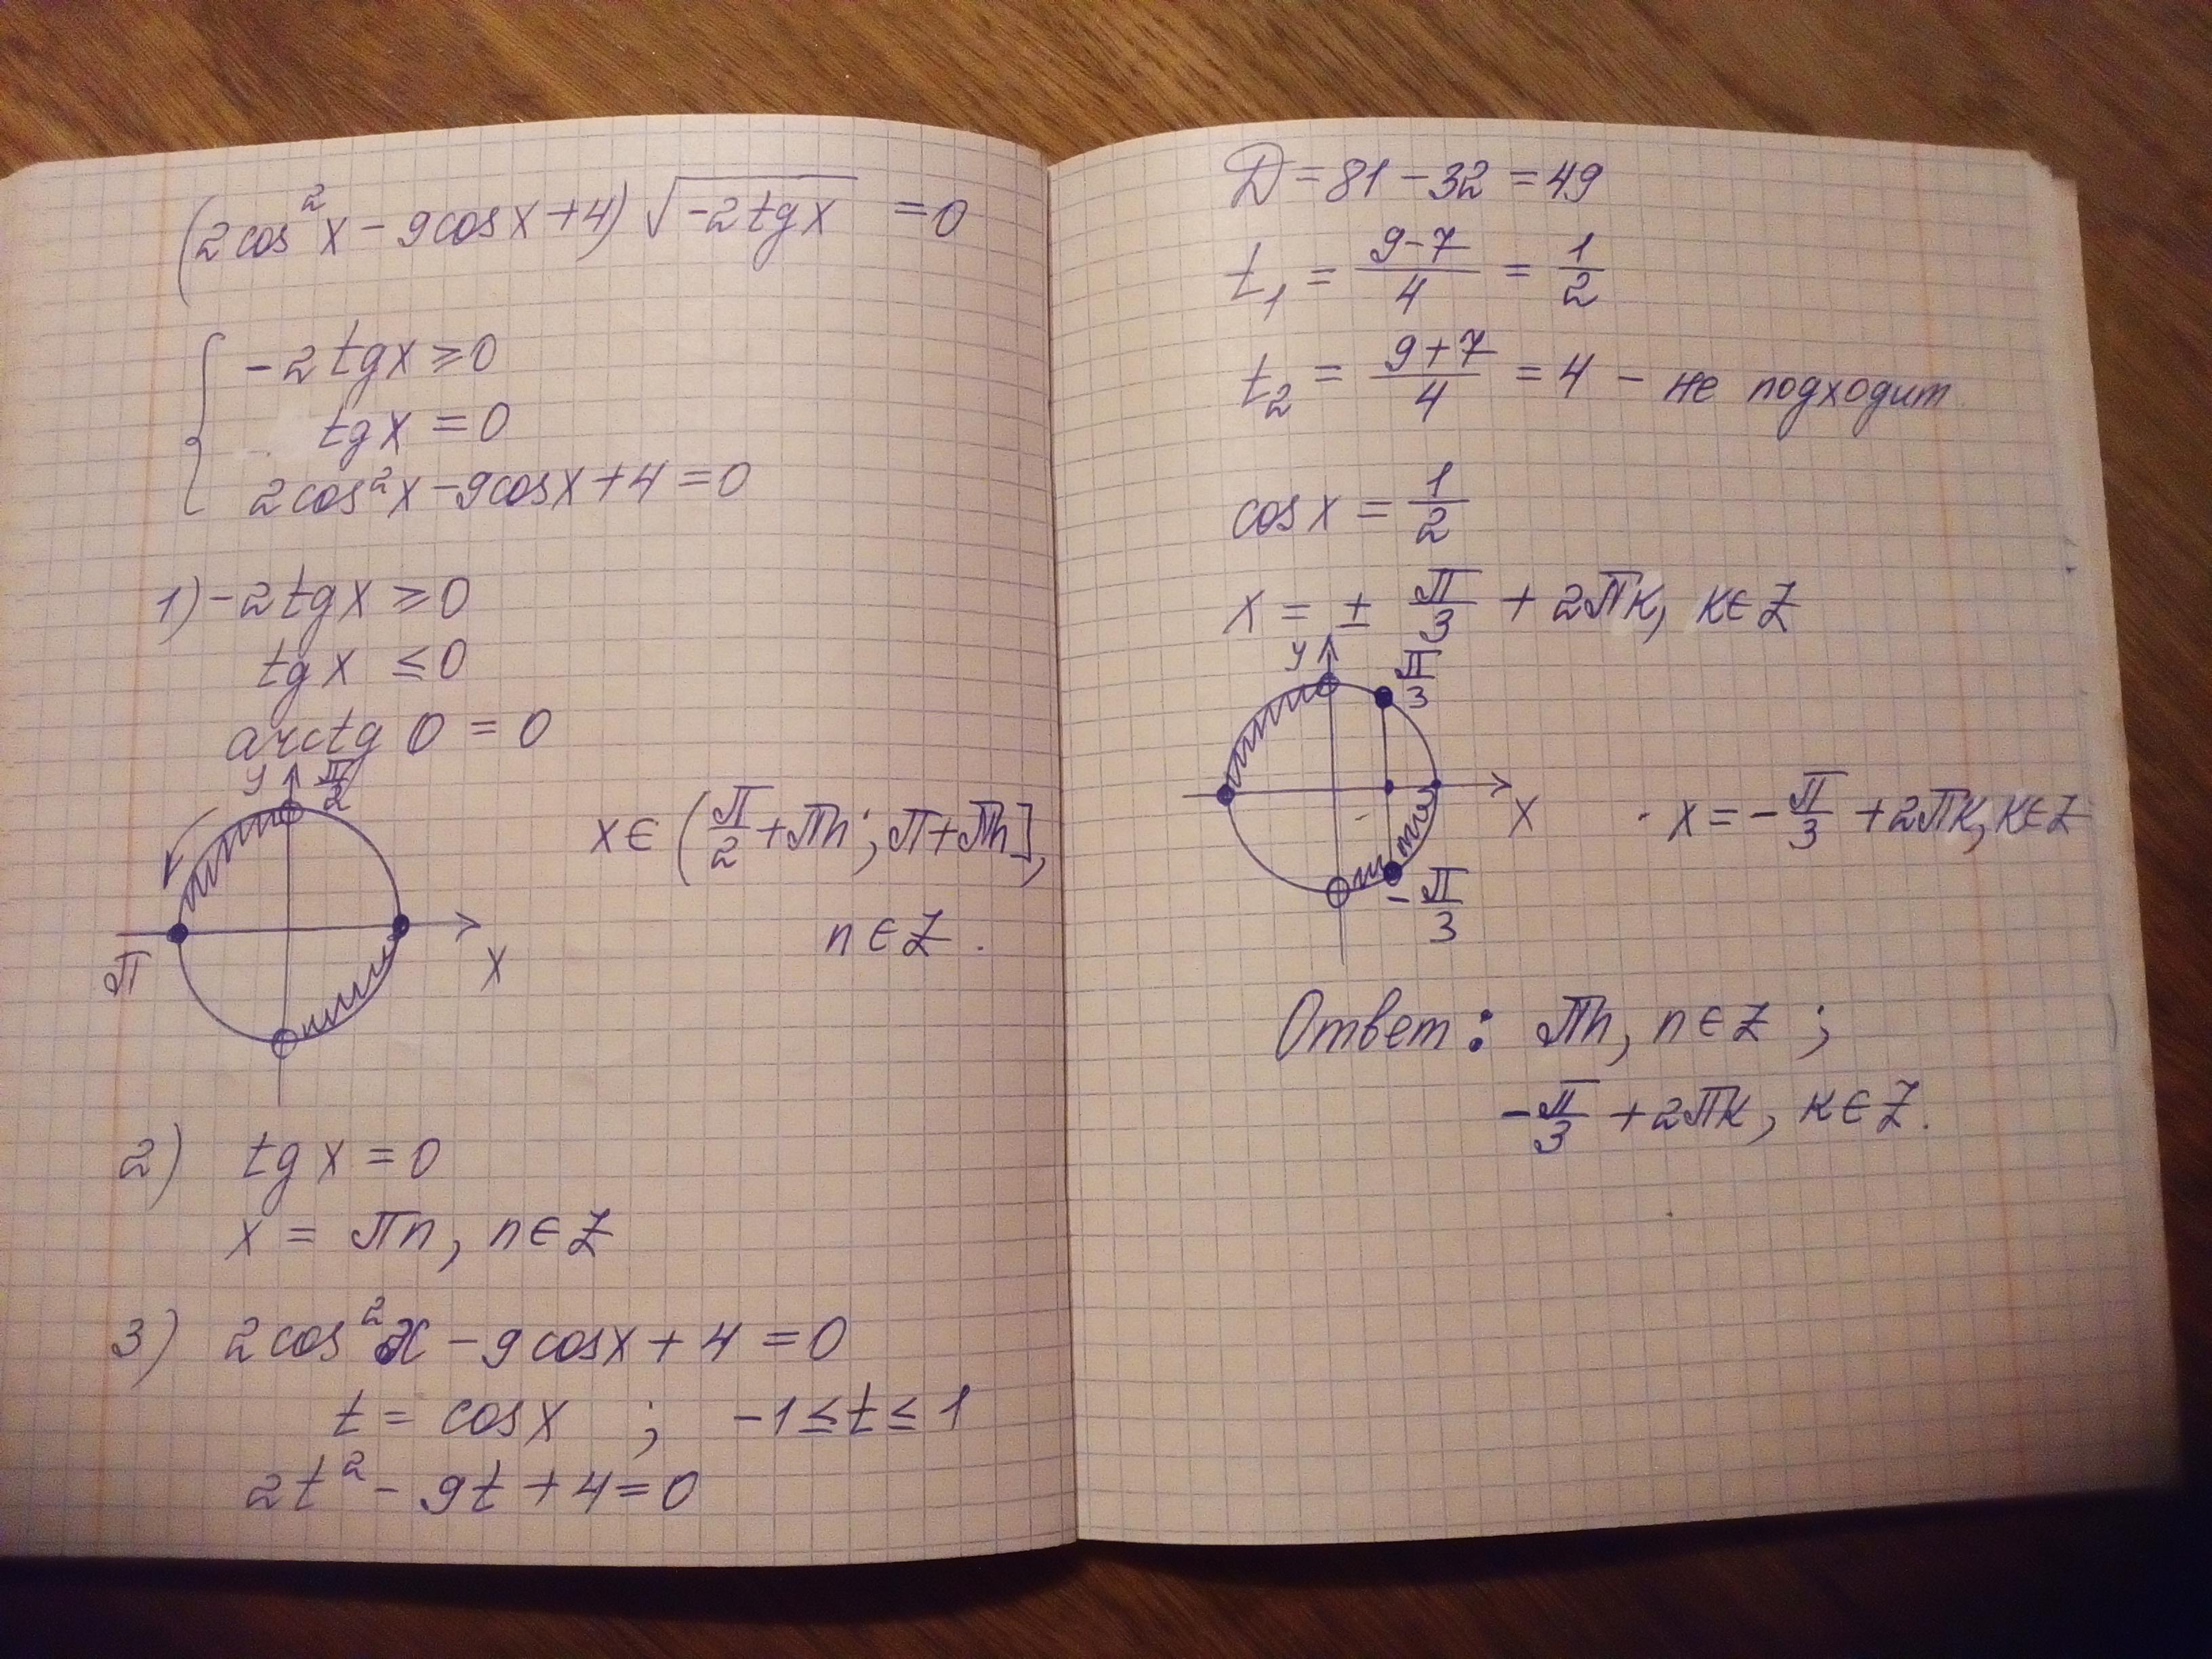 (2cos²x − 9cosx + 4) √(−2tgx) = 0
{ −2tgx ≥ 0
tgx = 0
2cos²x − 9cosx + 4 = 0
1) −2tgx ≥ 0
tgx ≤ 0
arctg 0 = 0
y π/2
x ∈ (π/2 + πn ; π + πn],
n ∈ Z.
π x
2) tgx = 0
x = πn, n ∈ Z
3) 2cos²x − 9cosx + 4 = 0
t = cosx ; −1 ≤ t ≤ 1
2t² − 9t + 4 = 0
D = 81 − 32 = 49
t₁ = (9−7)/4 = 1/2
t₂ = (9+7)/4 = 4 − не подходит
cosx = 1/2
x = ± π/3 + 2πк, к ∈ Z
y π/3
x
x = −π/3 + 2πк, к ∈ Z
−π/3
Ответ: πn, n ∈ Z ;
−π/3 + 2πк, к ∈ Z.